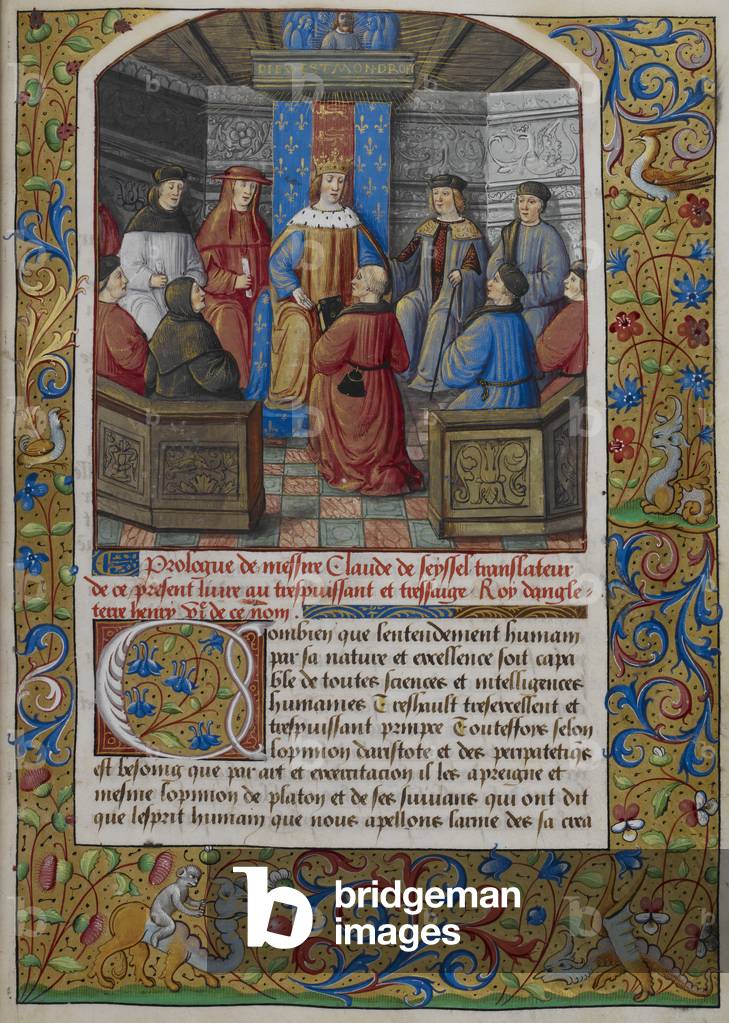 DIEV·EST·MON·DROI
Prologue de messire Claude de seyssel translateur
de ce present livre au trespuissant et tressaige Roy dangle
terre henry VIe de ce nom.
Combien que lentendement humain
par sa nature et excellence soit capa
ble de toutes sciences et intelligences
humaines Treshault tresexcellent et
trespuissant prince Touteffois selon
lopinion daristote et des peripatetiqs
est besoing que par art et exercitacion il les apreigne et
mesme lopinion de platon et de ses suivans qui ont dit
que lesprit humain que nous apellons lame des sa crea
b
bridgeman
images